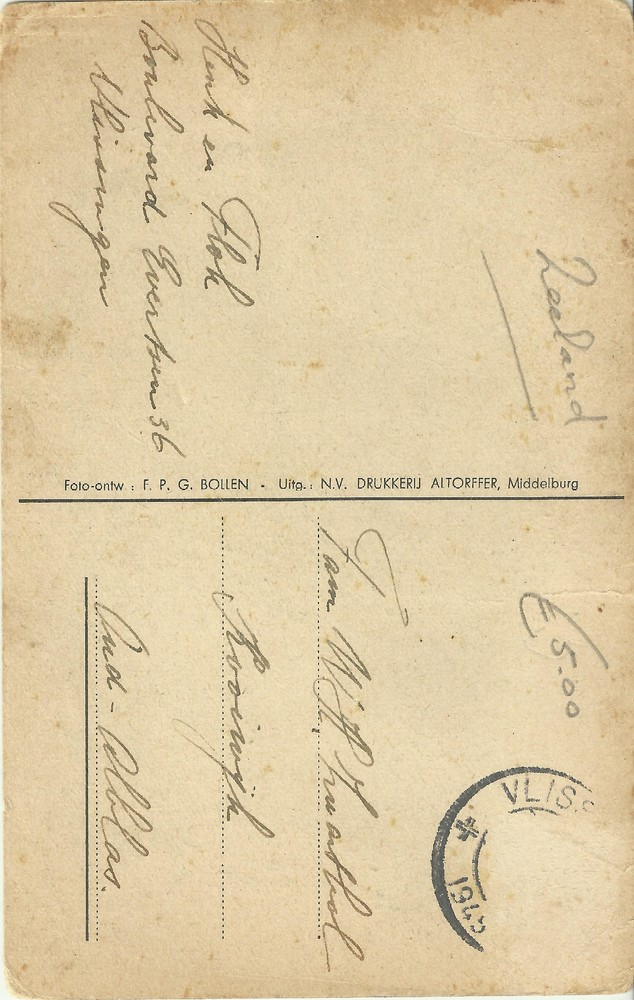 Zeeland
Henk en Flok
Boulevard Evertsen 36
Vlissingen
Foto-ontw.: F. P. G. BOLLEN - Uitg.: N.V. DRUKKERIJ ALTORFFER, Middelburg
€ 5.00
VLISS
194
Fam
Kooiwijk
Oud-Alblas.